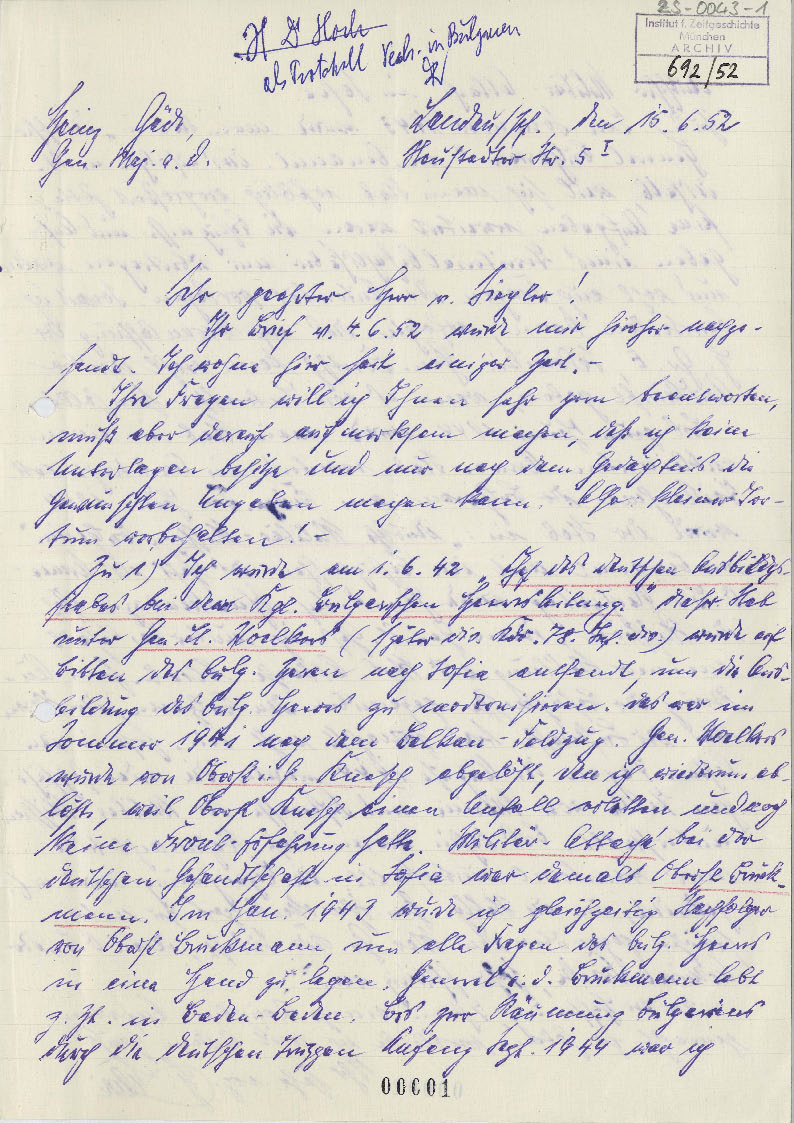 ZS-0043-1
Institut f. Zeitgeschichte
München
ARCHIV
692/52
H Dr Hoch
als Protokoll Verh. in Bulgarien
Heinz Gäde,
Gen. Maj. a. D.
Landau/Pf., den 15.6.52
Neustadter Str. 5 I
Sehr geehrter Herr v. Siegler!
Ihr Brief v. 4.6.52 wurde mir hierher nachge-
sandt. Ich wohne hier seit einiger Zeit.-
Ihre Fragen will ich Ihnen sehr gern beantworten,
muß aber darauf aufmerksam machen, daß ich keine
Unterlagen besitze und nur nach dem Gedächtnis die
gewünschten Angaben machen kann. Also kleiner Irr-
tum vorbehalten!-
Zu 1.) Ich wurde am 1.6.42 "Chef des deutschen Ausbildgs-
stabes bei der Kgl. Bulgarischen Heeresleitung." Dieser Stab
unter Gen. Lt. Voelkers (später Div. Kdr. 78. Inf. Div.) wurde auf
Bitten des bulg. Heeres nach Sofia entsandt, um die Aus-
bildung des bulg. Heeres zu modernisieren. Das war im
Sommer 1941 nach dem Balkan-Feldzug. Gen. Voelkers
wurde von Oberst i. G. abgelöst, den ich wiederum ab-
löste, weil Oberst einen Unfall erlitten und noch
keine Front-Erfahrung hatte. Militär-Attaché bei der
deutschen Gesandtschaft in Sofia war damals Oberst Bruck-
mann. Im Jan. 1943 wurde ich gleichzeitig Nachfolger
von Oberst Bruckmann, um alle Fragen des bulg. Heeres
in eine Hand zu legen. General a. D. Bruckmann lebt
z. Zt. in Baden-Baden. Bis zur Räumung Bulgariens
durch die deutschen Truppen Anfang Sept. 1944 war ich
00001